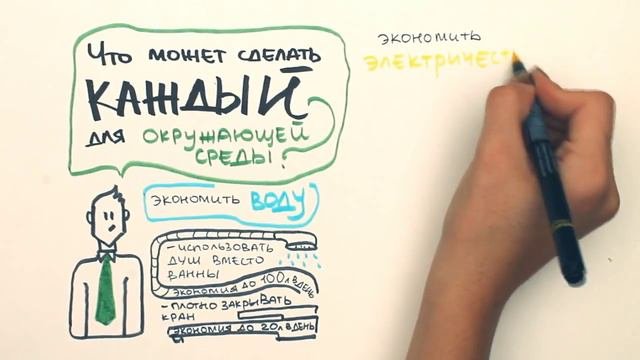 Что может сделать
каждый
для окружающей
среды?
экономить воду
- использовать
душ вместо
ванны
экономия до 100л в день
- плотно закрывать
кран
экономия до 20л в день
экономить
электричест